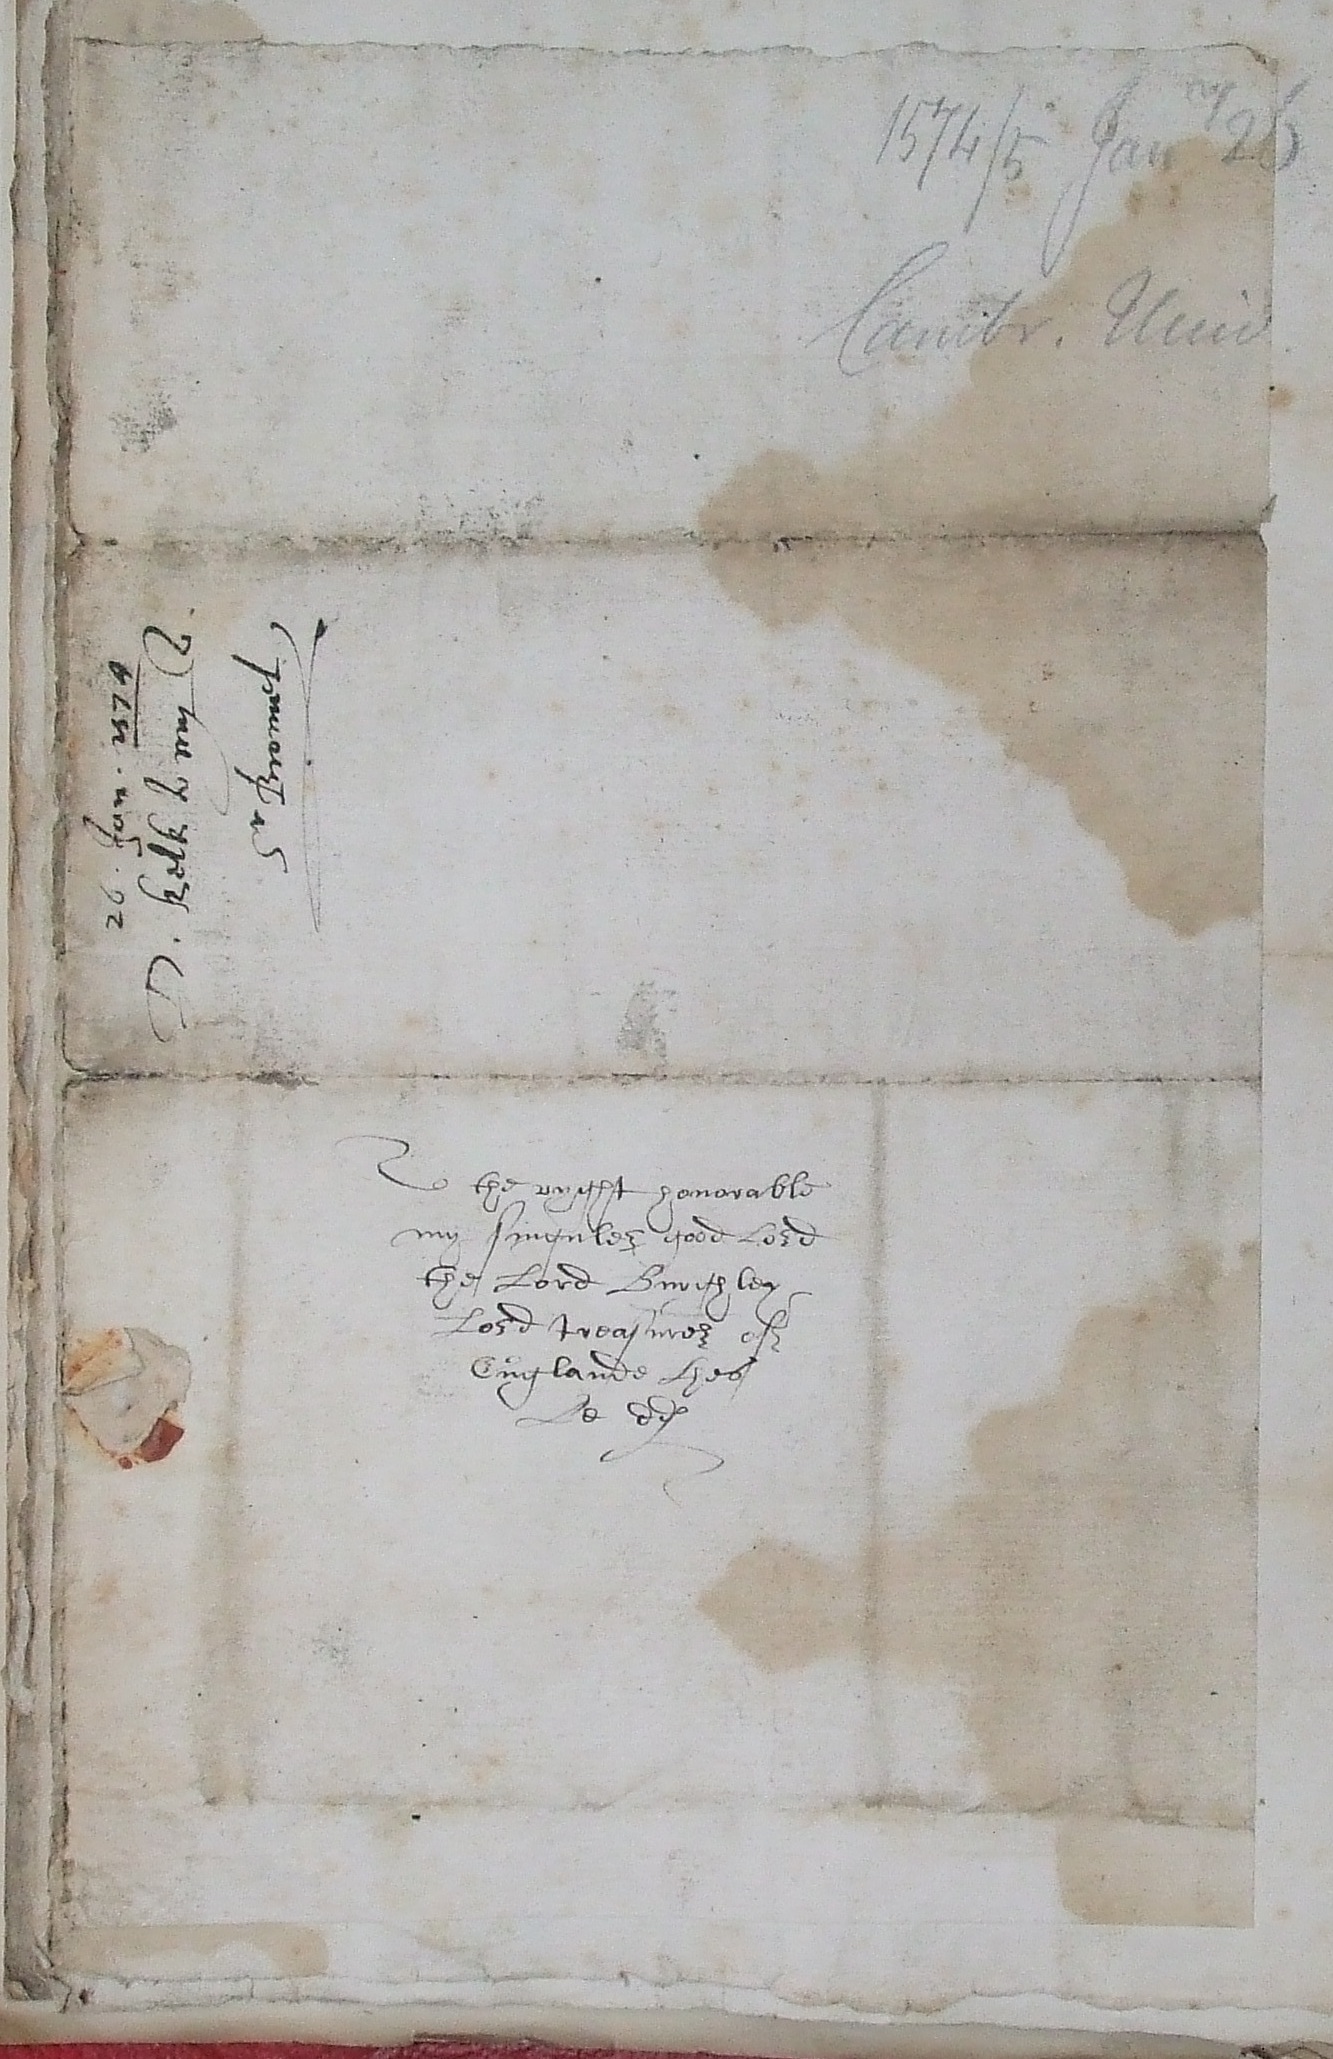 1574/5 Jan^ry 26
Cambr. Univ.
26 . Jan . 1574
To the ryght honorable
my singuler good Lord
the Lord Burghley
Lord treasurer of
Englande thes
be dd